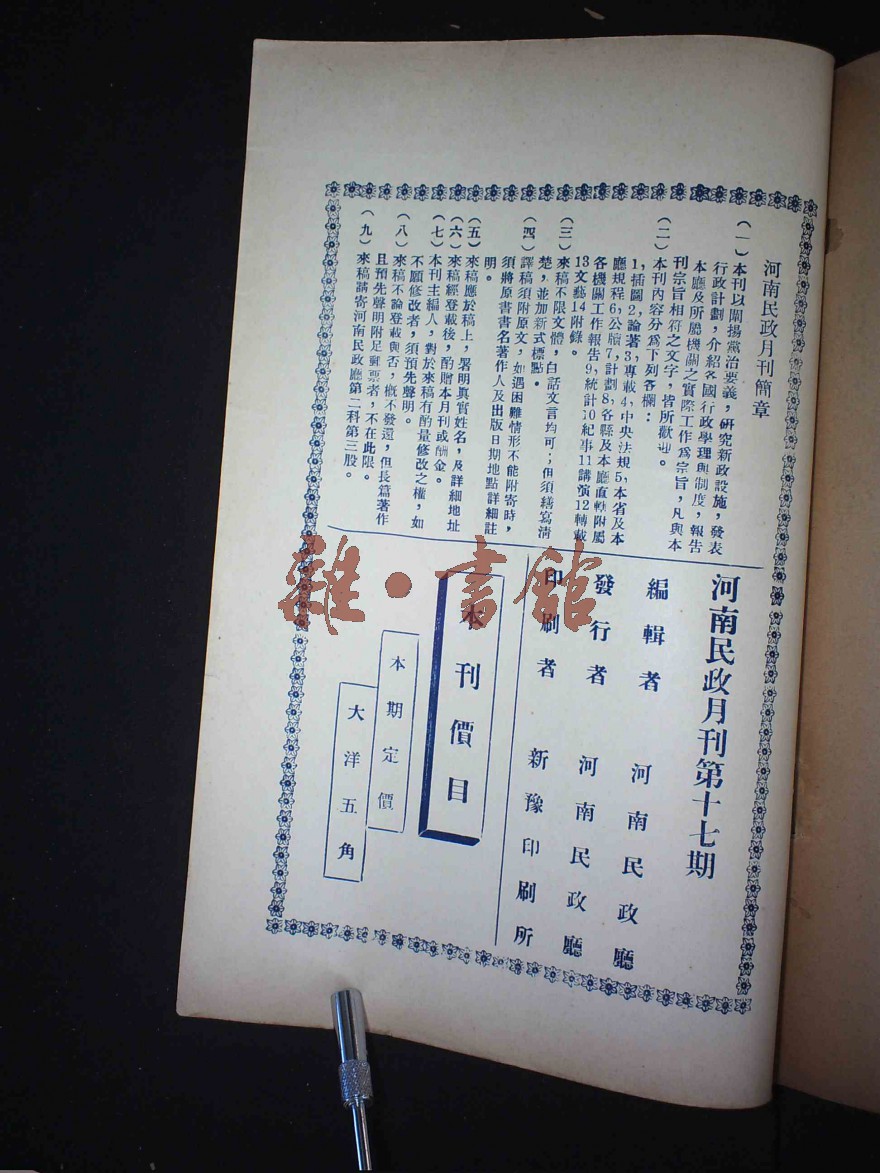 河南民政月刊簡章
(一)本刊以闡揚黨治要義，研究新政設施，發表
行政計劃，介紹各國行政學理與制度，報告
本廳及所屬機關之實際工作爲宗旨，凡與本
刊宗旨相符之文字，皆所歡迎。
(二)本刊內容分爲下列各欄：
1,插圖2,論著3,專載4,中央法規5,本省及本
廳規程6,公牘7,計劃8,各縣及本廳直轄附屬
各機關工作報告9,統計10紀事11講演12轉載
13文藝14附錄。
(三)來稿不限文體，白話文言均可；但須繕寫清
楚，並加新式標點。
(四)譯稿須附原文，如遇困難情形不能附寄時，
須將原書書名著作人及出版日期地點詳細註
明。
(五)來稿應於稿上，署明眞實姓名，及詳細地址
(六)來稿經登載後，酌贈本月刊或酬金。
(七)本刊主編人，對於來稿有酌量修改之權，如
不願修改者，須預先聲明。
(八)來稿不論登載與否，槪不發還，但長篇著作
且預先聲明附足郵票者，不在此限。
(九)來稿請寄河南民政廳第二科第三股。
河南民政月刊第十七期
編輯者 河南民政廳
發行者 河南民政廳
印刷者 新豫印刷所
本刊價目
本期定價
大洋五角
雜·書館